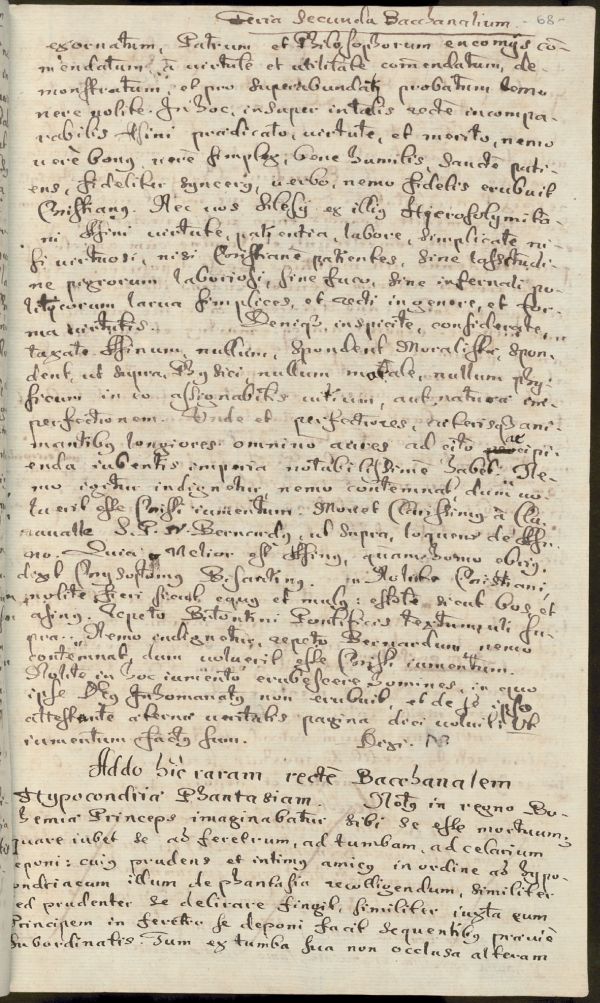 Feria Secunda Bacchanalium. -68-
exornatum, Patrum et Philosophorum encomijs com̄-
mendatum, à virtute et utilitate com̄endatum, de-
monstratum, et pro superabundati probatum nemo
nere nolite. In hoc, insuper in talis rectè incompa-
rabilis Asini praedicato, virtute, et merito, nemo
verè bonus, verè simplex, benè humilis, Sanctè pati-
ens, fideliter syncerus, verbo, nemo fidelis erubuit
Christianus. Nec vos Silesij ex illius Hierosolymita-
ni Asini virtute, patientia, labore, simplicitate ni-
si virtuosi, nisi Christianè patientes, sine lassitudi-
ne pigrorum laboriosi, sine fuco, sine infernali po-
liticorum larva simplices, et recti in genere, et for-
ma virtutis. Deniq; inspicite, considerate,
taxate Asinum, nullum, spondent Moralistae, spon-
dent, ut supra, Physici nullum morale, nullum phy-
sicum in eo assignabitis vitium, aut natura im-
perfectionem. Unde et perfectiores, caeterisq; ani-
mantibus longiores omnino aures ad citò percipi-
enda iubentis imperia notabilissimè habet. Ne-
mo igitur indignetur, nemo contemnat, dum vo-
luerit esse Christi iumentum. Monet Christianus à Cla-
ravalle S. P. N. Bernardus, ut supra, loquens de Asi-
no. Quia: Melior est Asinus, quam homo ebrius,
dixit Chrysostomus Nolite Christiani,
nolite fieri sicut equus et mulus: estote sicut bos, et
asinus. repeto Bitontini Pontificis textum, uti su-
pra. Nemo indignetur, repeto Bernardum, nemo
contemnat, dum voluerit esse Christi iumentum.
Nolite in hoc iumento erubescere homines, in quo
ipse Deus Inhomanatus non erubuit, et de se ipso
attestante aeternae veritatis pagina dici voluit: Ut
iumentum factus sum. Dixi.
Addo hic raram rectè Bacchanalem
Hypocondriae Phantasiam. Notus in regno Bo-
hemiae Princeps imaginabatur sibi se esse mortuum,
quare iubet se ad feretrum, ad tumbam, ad celarium
deponi: cuius prudens et intimus amicus in ordine ad hypo-
condriacum illum de phantasia recolligendum, similiter
sed prudenter se delirare fingit, similiter iuxta eum
Principem in feretro se deponi facit sequentibus praeviè
subordinatis. Tum ex tumba sua non occlusa alteram